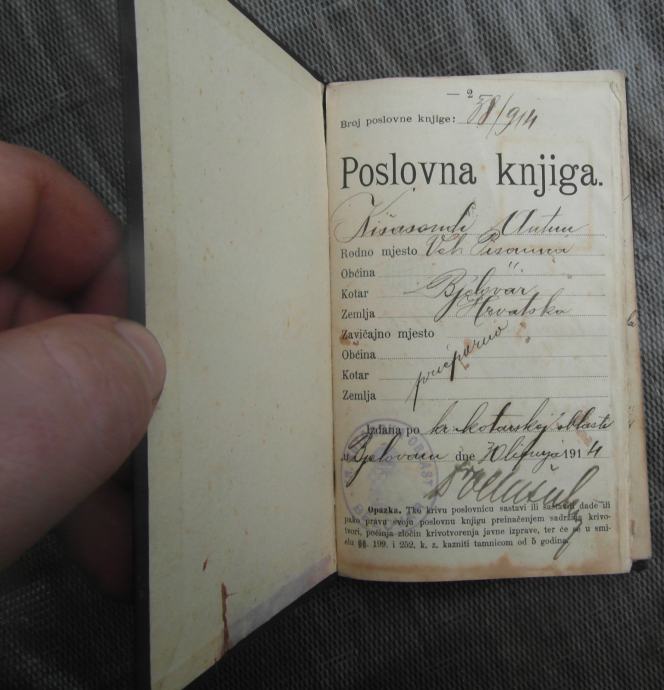 — 2
Broj poslovne knjige: 38/914
Poslovna knjiga.
Kišasondi Antun
Rodno mjesto Vel. Pisanica
Občina "
Kotar Bjelovar
Zemlja Hrvatska
Zavičajno mjesto
Občina
Kotar
Zemlja
Izdana po kr. kotarskoj oblasti
u Bjelovaru dne 30 lipnja 1914
OBLAST
Opazka. Tko krivu poslovnicu sastavi ili sastaviti dade ili
pako pravu svoju poslovnu knjigu preinačenjem sadržaja krivo-
tvori, počinja zločin krivotvorenja javne izprave, ter će se u smi-
slu §§. 199. i 252. k. z. kazniti tamnicom od 5 godina.